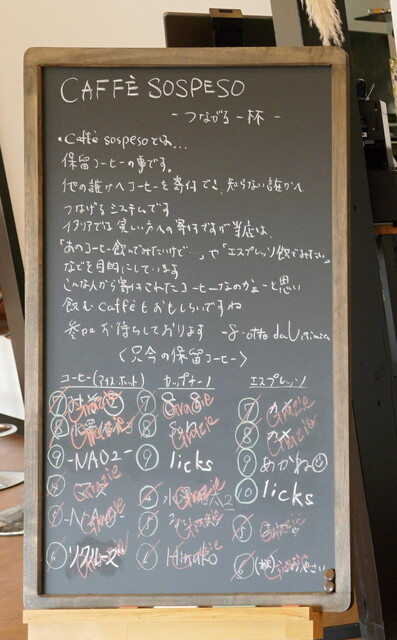 CAFFÈ SOSPESO
- つながる一杯 -
・Caffè sospesoとは…
保留コーヒーの事です。
他の誰かへコーヒーを寄付でき、知らない誰かへ
つなげるシステムです
イタリアでは貧しい方への寄付ですが当店は、
「あのコーヒー飲んでみたいけど…」や「エスプレッソ飲んでみたい」
などを目的にしています
こんな人から寄付されたコーヒーなのかぁーと思い
飲むCaffèもおもしろいですね
参加お待ちしております
〈只今の保留コーヒー〉
コーヒー(アイス ホット) カップチーノ エスプレッソ
⑦ Grazie ⑦ Grazie ⑦ Grazie
⑧ Grazie ⑧ Grazie ⑧ Grazie
⑨ -NAO2- ⑨ licks ⑨ めがね
Grazie ⑩ licks
Grazie Grazie ⑤ Grazie
⑥ Grazie ⑥ Himako Grazie ⑥ Grazie